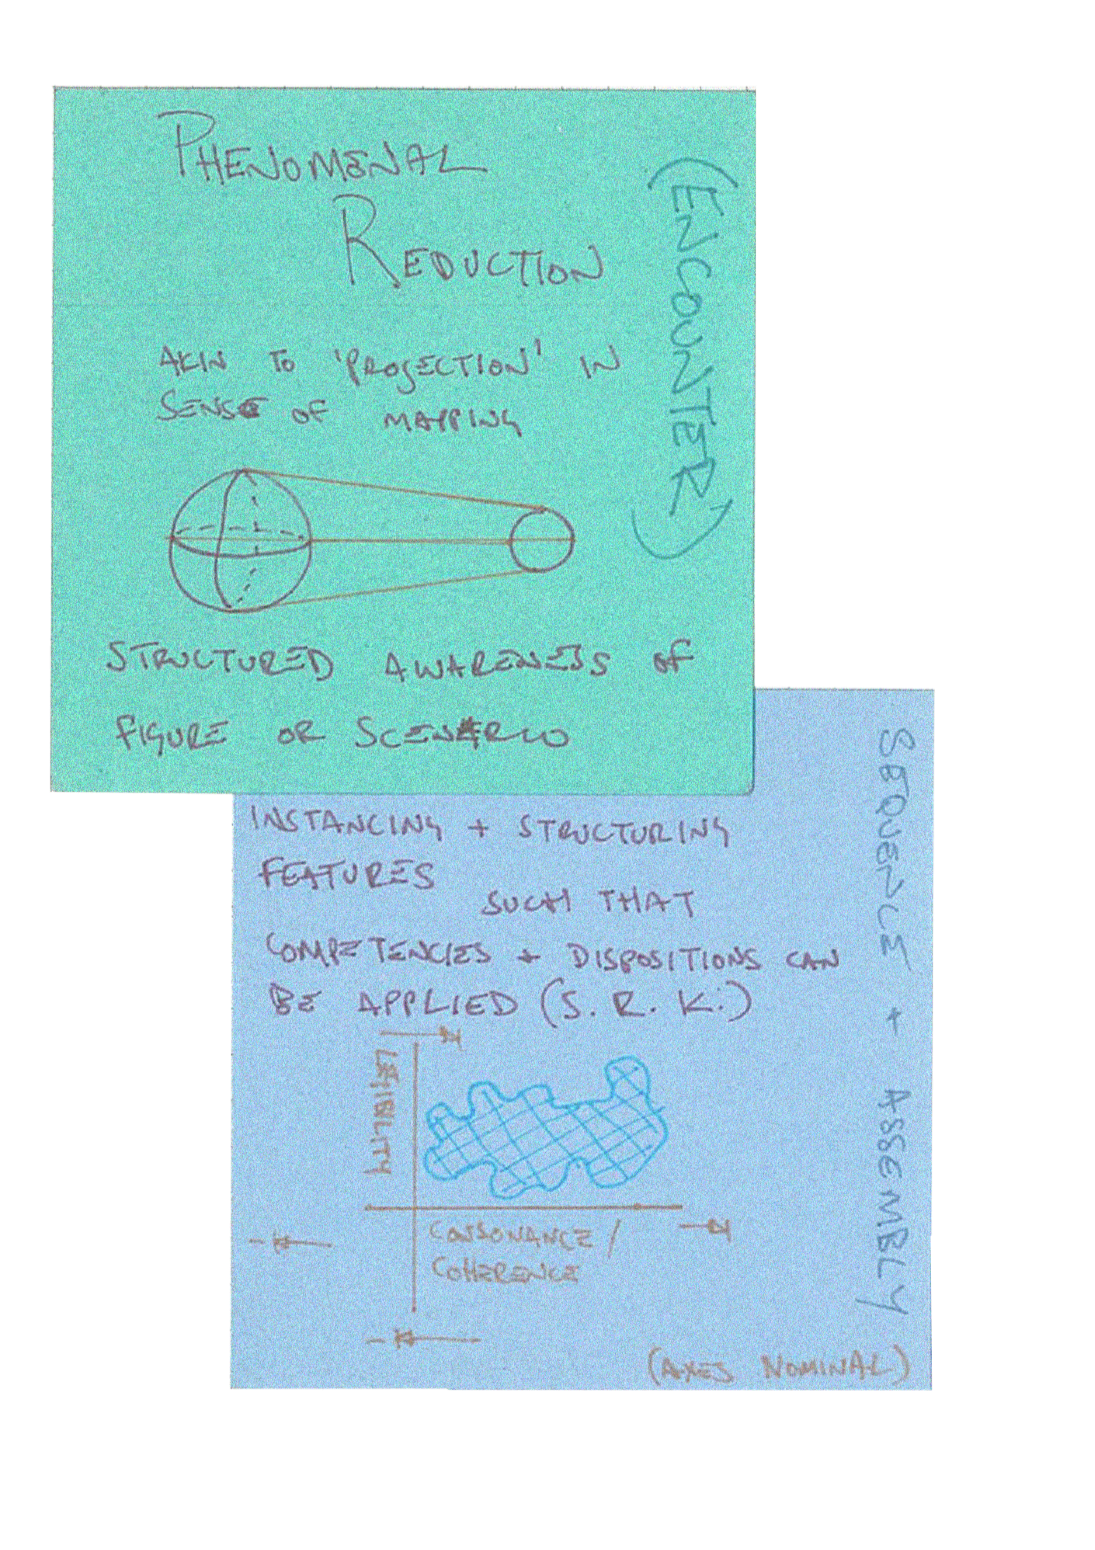 PHENOMENAL
REDUCTION
(ENCOUNTER)
AKIN TO 'PROJECTION' IN
SENSE OF MAPPING
STRUCTURED AWARENESS OF
FIGURE OR SCENARIO
INSTANCING + STRUCTURING
FEATURES
SUCH THAT
COMPETENCIES + DISPOSITIONS CAN
BE APPLIED (S. R. K.)
SEQUENCE + ASSEMBLY
LEGIBILITY
CONSONANCE /
COHERENCE
(AXES NOMINAL)